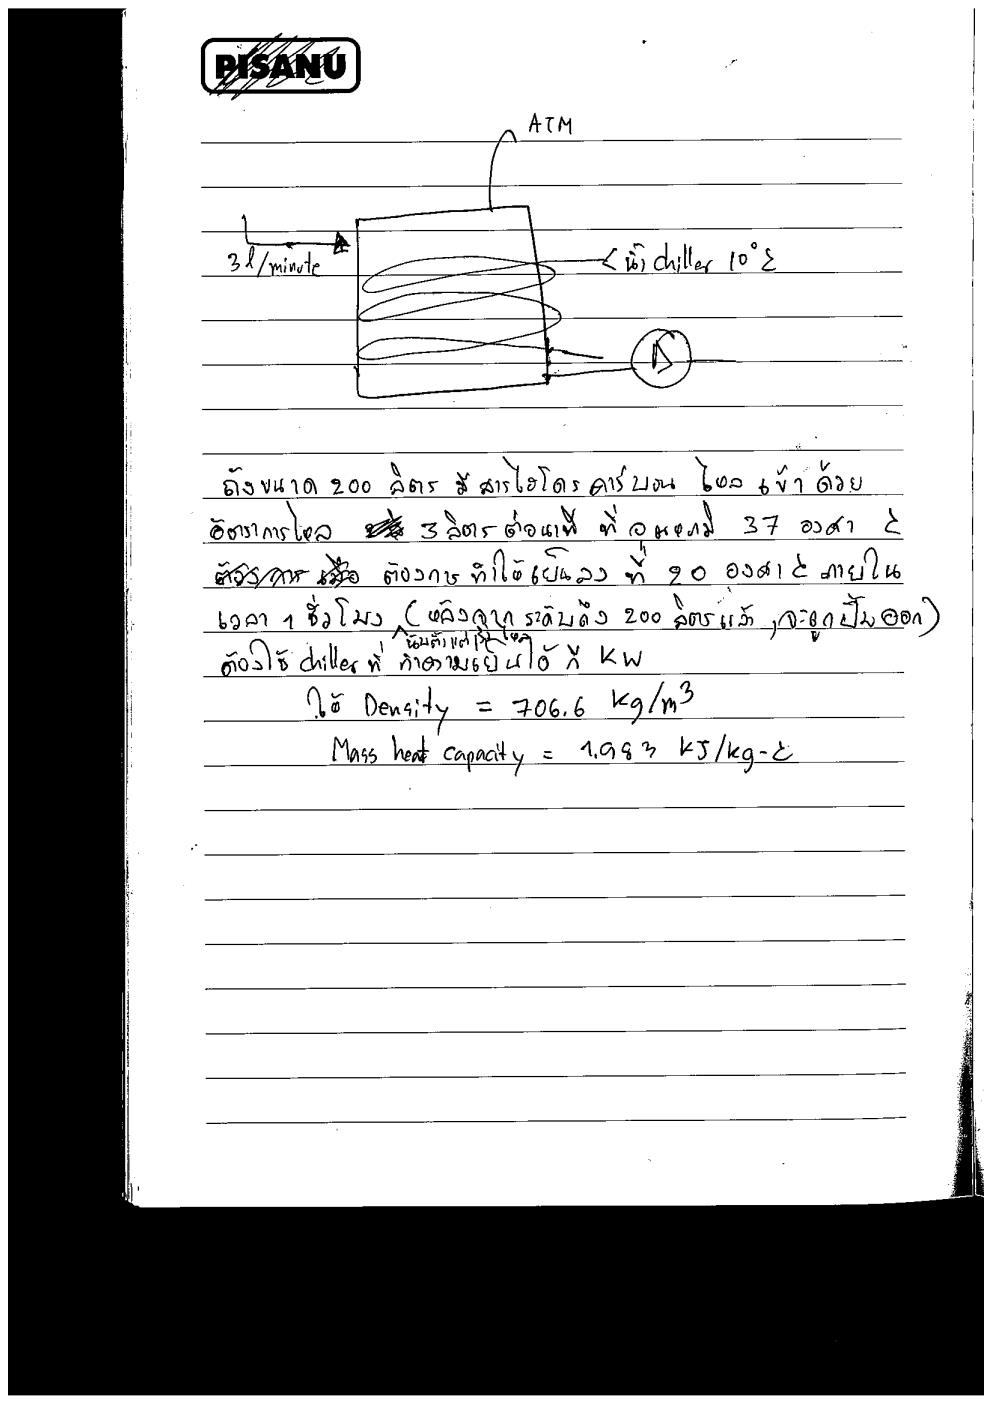 PISANU
ATM
3 l/minute
น้ำ chiller 10°C
ถังขนาด 200 ลิตร มีสารไฮโดรคาร์บอน ไหลเข้าด้วย
อัตราการไหล 3 ลิตรต่อนาที ที่อุณหภูมิ 37 องศา C
ต้องการทำให้เย็นลง ที่ 20 องศา C ภายใน
เวลา 1 ชั่วโมง (หลังจาก ระดับถึง 200 ลิตรแล้ว, จะถูกปั๊มออก)
นับตั้งแต่เริ่มไหล
ต้องใช้ chiller ที่ ทำความเย็นได้ กี่ KW
ใช้ Density = 706.6 Kg/m³
Mass heat capacity = 1.983 KJ/kg-C